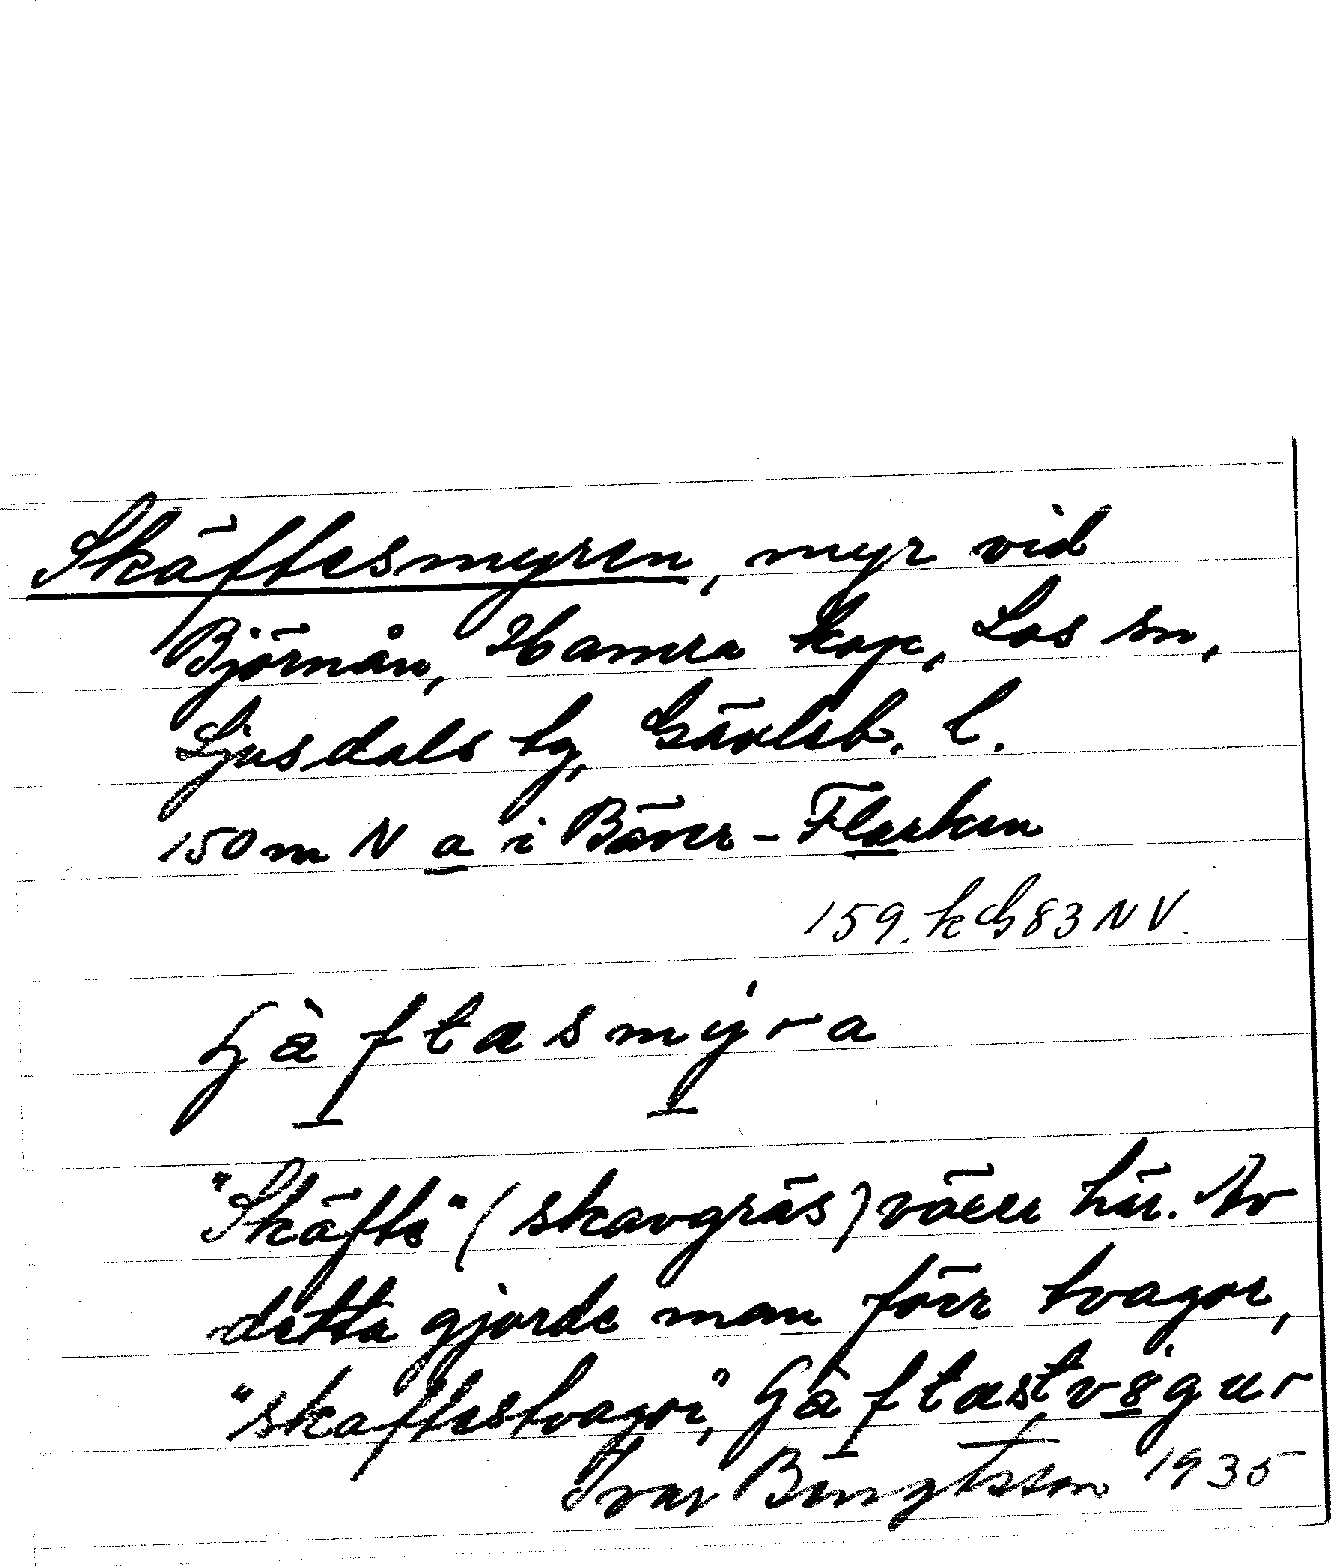 Skäftesmyren, myr vid
Björnån, Hamra kap, Los sn,
Ljusdals tg, Gävleb. l.
150 m N a i Bäver-Flarken
159. k G 83 NV.
"Skäfte" (skavgräs) växer här. Av
detta gjorde man förr tvagor,
"skaftestvagor",
Ivar Bengtsson 1935